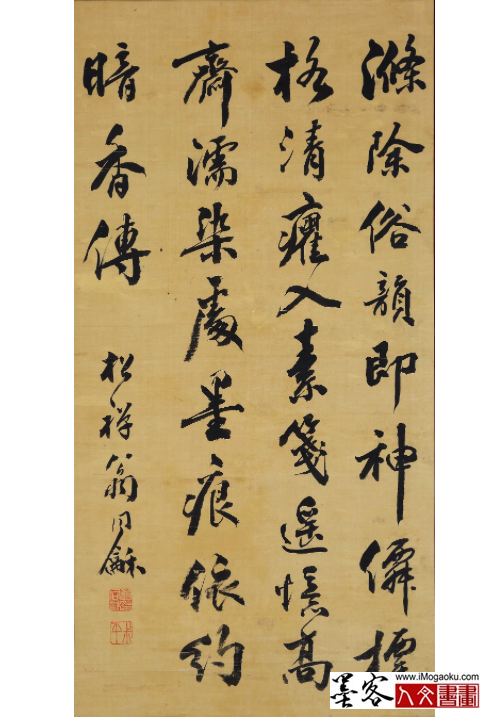 滌除俗韻即神僊標
格清癯入素箋遥憶高
齋濡染處墨痕依約
暗香傳
松禅翁同龢
墨客
www.iMogaoku.com
人文書畫